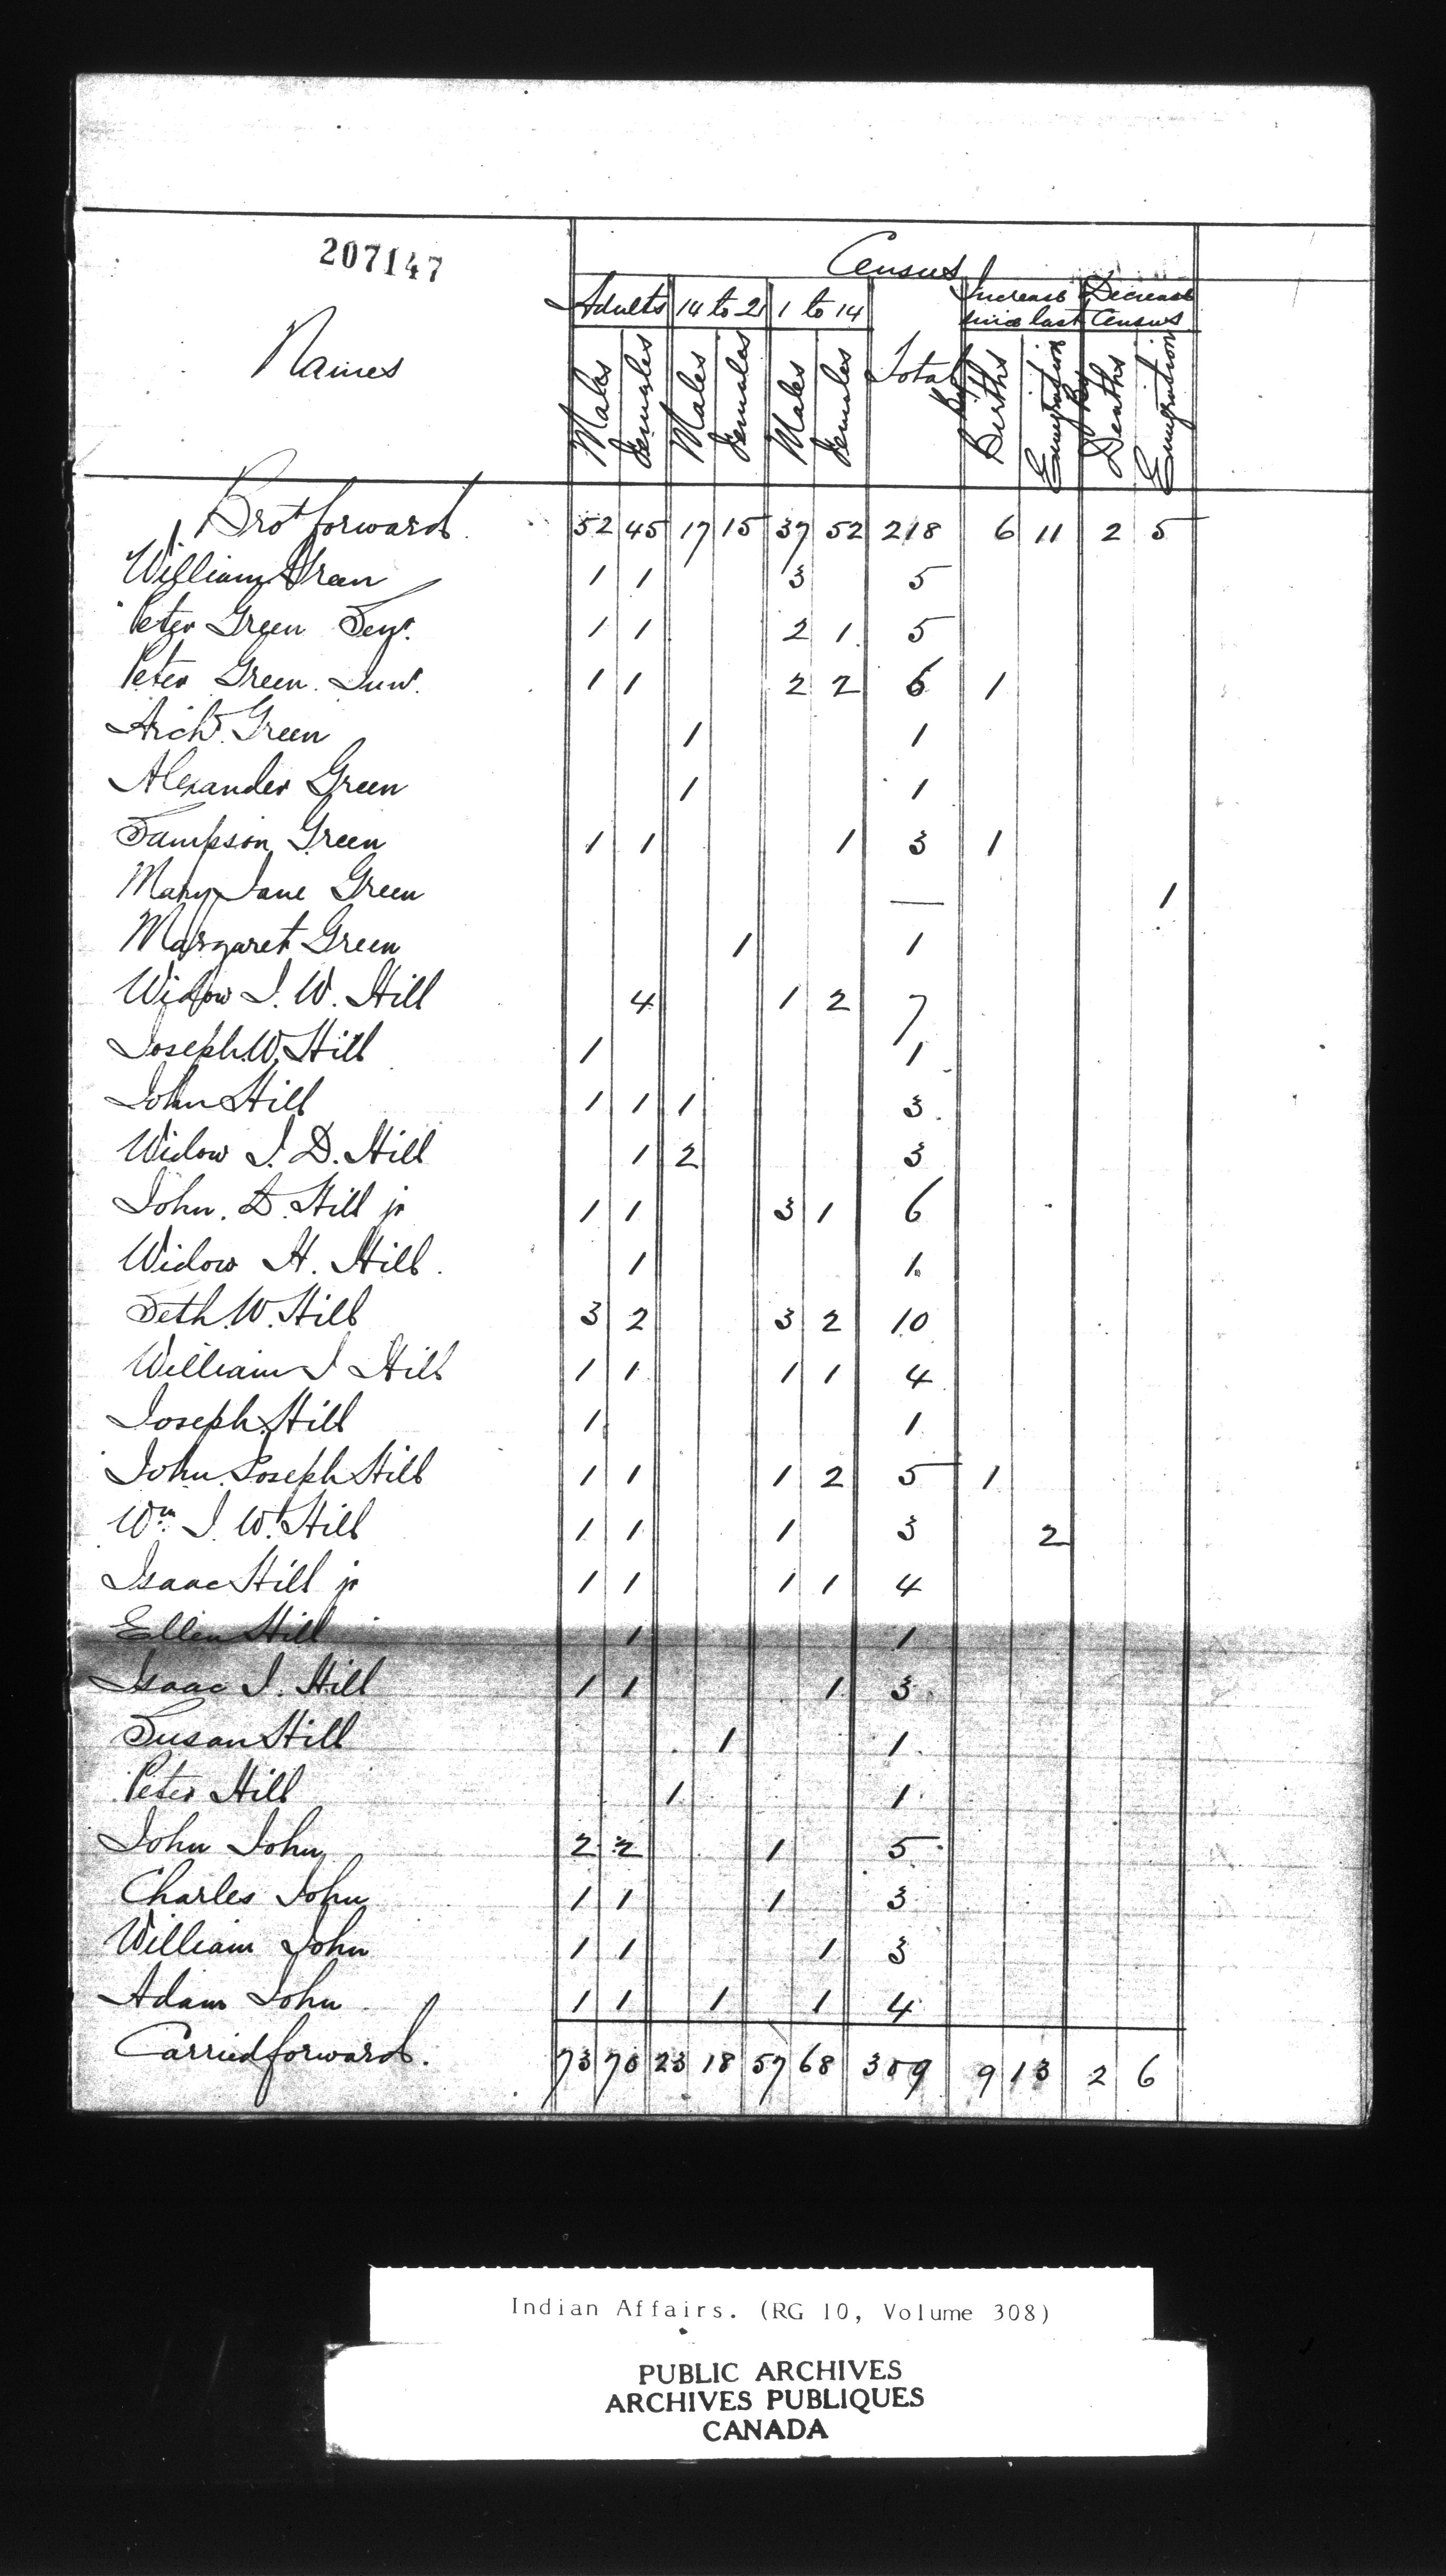 207147
Census
Names
Adults 14 to 21 1 to 14 Total Increase & Decrease
since last Census
Males Females Males Females Males Females By Births Emigration By Deaths Emigration
Brot forward 52 45 17 15 37 52 218 6 11 2 5
William Green 1 1 3 5
Peter Green Senr. 1 1 2 1 5
Peter Green Junr. 1 1 2 2 6 1
Archd. Green 1 1
Alexander Green 1 1
Sampson Green 1 1 1 3 1
Mary Jane Green — 1
Margaret Green 1 1
Widow J. W. Hill 4 1 2 7
Joseph W. Hill 1 1
John Hill 1 1 1 3
Widow J. D. Hill 1 2 3
John. D. Hill jr 1 1 3 1 6
Widow H. Hill. 1 1
Seth. W. Hill 3 2 3 2 10
William J Hill 1 1 1 1 4
Joseph Hill 1 1
John Joseph Hill 1 1 1 2 5 1
Wm. J. W. Hill 1 1 1 3 2
Isaac Hill jr 1 1 1 1 4
Ellen Hill 1 1
Isaac J. Hill 1 1 1 3
Susan Hill 1 1
Peter Hill 1 1
John John 2 2 1 5
Charles John 1 1 1 3
William John 1 1 1 3
Adam John 1 1 1 1 4
Carried forward. 73 70 23 18 57 68 309 9 13 2 6
Indian Affairs. (RG 10, Volume 308)
PUBLIC ARCHIVES
ARCHIVES PUBLIQUES
CANADA